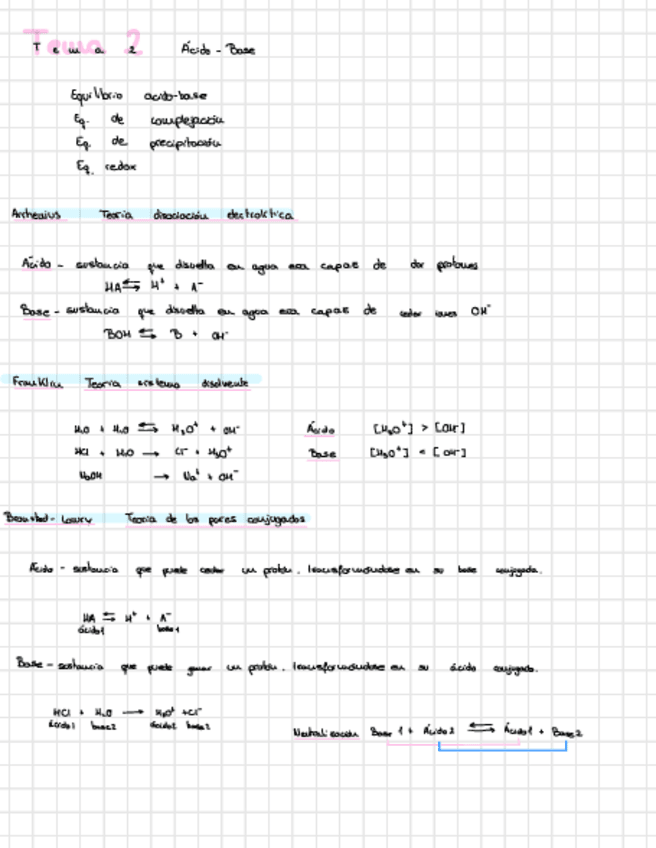 Tema 2
Tema 2 Ácido - Base
Equilibrio acido-base
Eq. de complejación
Eq. de precipitación
Eq. redox
Arrhenius Teoria disociación electrolítica
Ácido - sustancia que disuelta en agua era capaz de dar protones
HA ⇆ H⁺ + A⁻
Base - sustancia que disuelta en agua era capaz de ceder iones OH⁻
BOH ⇆ B + OH⁻
Franklin Teoria sistema disolvente
H₂O + H₂O ⇆ H₃O⁺ + OH⁻ Ácido [H₃O⁺] > [OH⁻]
HCl + H₂O → Cl⁻ + H₃O⁺ Base [H₃O⁺] < [OH⁻]
NaOH → Na⁺ + OH⁻
Bronsted-Lowry Teoria de los pares conjugados
Ácido - sustancia que puede ceder un protón, transformándose en su base conjugada.
HA ⇆ H⁺ + A⁻
ácido1 base1
Base - sustancia que puede ganar un protón, transformándose en su ácido conjugado.
HCl + H₂O → H₃O⁺ + Cl⁻
ácido1 base2 ácido2 base2
Neutralización Base 1 + Ácido 2 ⇆ Ácido 1 + Base 2